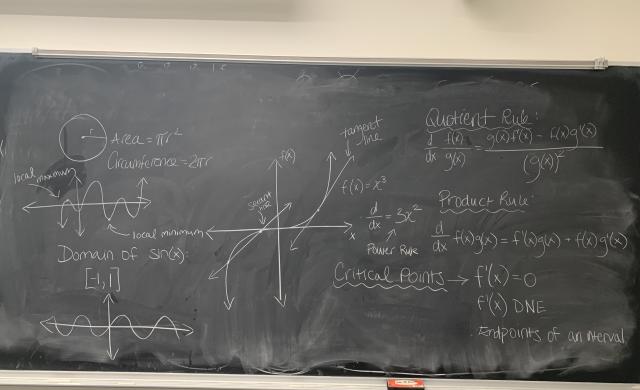 r
Area = πr²
Circumference = 2πr
local maximum
local minimum
Domain of sin(x):
[-1,1]
f(x)
x
secant line
tangent
line
f(x) = x³
d/dx = 3x²
Power Rule
Quotient Rule:
d/dx f(x)/g(x) = g(x)f'(x) - f(x)g'(x)/(g(x))²
Product Rule:
d/dx f(x)g(x) = f'(x)g(x) + f(x)g'(x)
Critical Points → f'(x) = 0
f'(x) DNE
Endpoints of an interval